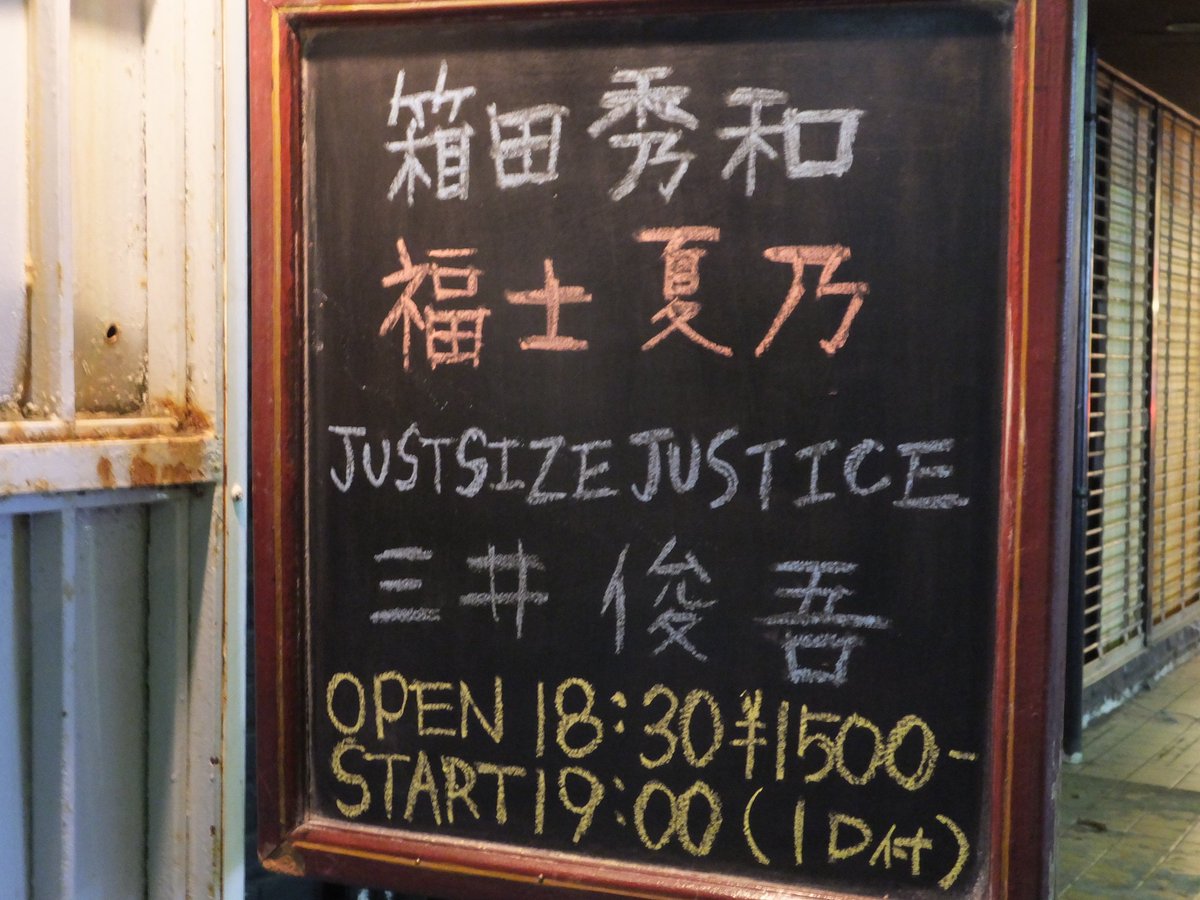 箱田秀和
福士夏乃
JUSTSIZE JUSTICE
三井俊吾
OPEN 18:30 ¥1500-
START 19:00 (1D付)